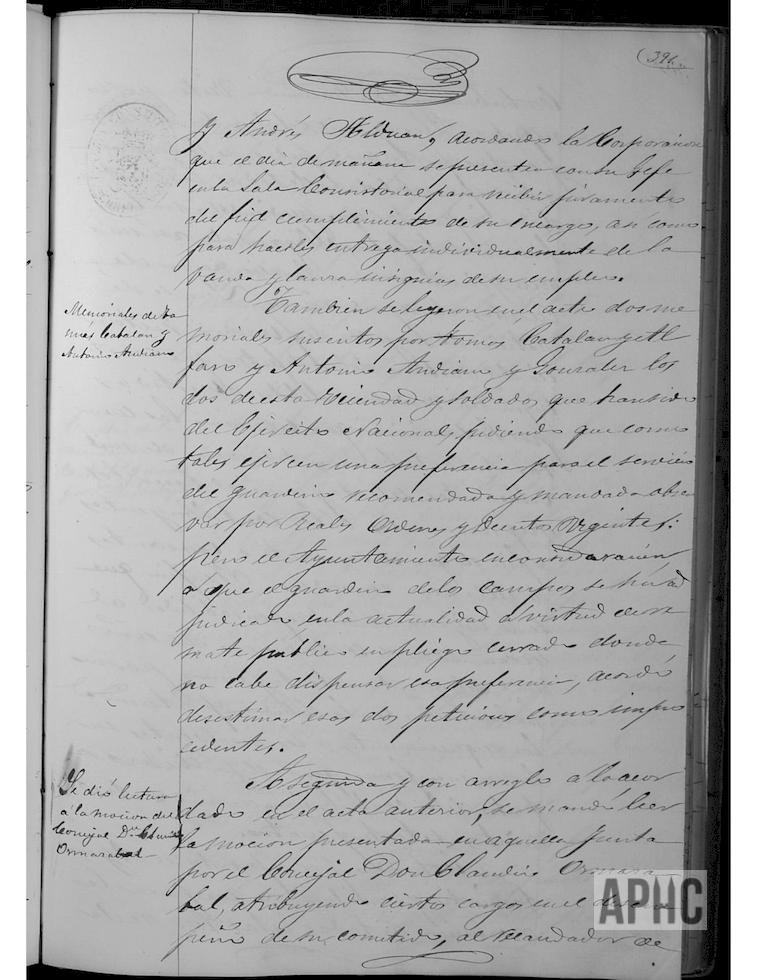 (396
y Andrés Alduan, acordando la Corporación
que el dia de mañana se presenten con su Gefe
en la Sala Consistorial para recibir juramento
del fiel cumplimiento de su encargo, asi como
para hacerles entrega individualmente de la
vanda y lanza insignias de su empleo.
Memoriales de To
más Catalan y
Antonio Andiano
Tambien se leyeron en el acta dos me
moriales suscritos por Tomas Catalan y el
faro y Antonio Andiano y Gonzalez los
dos de esta Vecindad y soldados que han sido
del Ejército Nacional, pidiendo que como
tales ejercen una preferencia para el servicio
de guarderio recomendada y mandada obser
var por Reales Ordenes y Decretos Vigentes:
pero el Ayuntamiento en consideracion
a que el guarderio de los campos se há ad
judicado en la actualidad á virtud de re
mate público en pliego cerrado donde
no cabe dispensar esa preferencia, acordó
desestimar esas dos peticiones como impro
cedentes.
Se dió lectura
á la mocion del
Concejal Dn. Claudio
Ormazabal
A seguida y con arreglo á lo acor
dado en el acta anterior, se mandó leer
la mocion presentada en aquella Junta
por el Concejal Don Claudio Ormaza
bal, atribuyendo ciertos cargos en el desem
peño de su cometido, al recaudador de
APHC